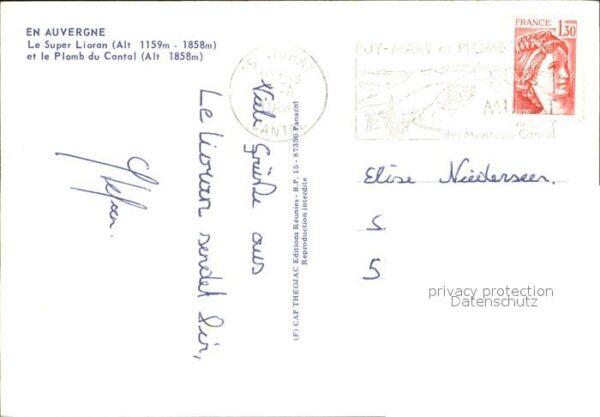 EN AUVERGNE
Le Super Lioran (Alt 1159m - 1858m)
et le Plomb du Cantal (Alt 1858m)
Viele Grüsse aus
Le Lioran sendet Dir,
Stefan.
(F) CAP THEOJAC Editions Réunies - B.P. 15 - 87350 Panazol
Reproduction interdite
CANTAL
PUY-MARY et PLOMB
des Monts du Cantal
FRANCE
1,30
Elise Niederseer.
S
5
privacy protection
Datenschutz